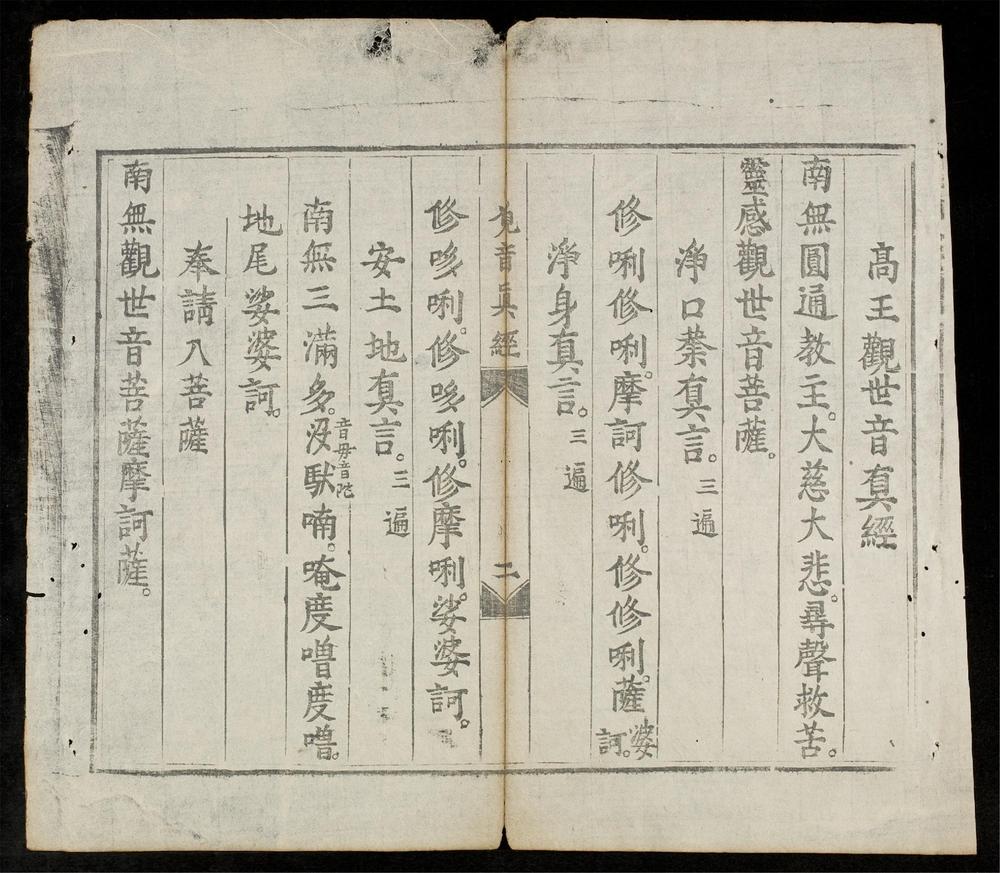 高王觀世音真經
南無圓通教主。大慈大悲。尋聲救苦。
靈感觀世音菩薩。
淨口業真言。三遍
修唎修唎。摩訶修唎。修修唎。薩婆訶。
淨身真言。三遍
觀音真經 二
修哆唎。修哆唎。修摩唎。娑婆訶。
安土地真言。三遍
南無三滿多。沒馱喃。唵度嚕度嚕。
音毋音陀
地尾娑婆訶。
奉請八菩薩
南無觀世音菩薩摩訶薩。